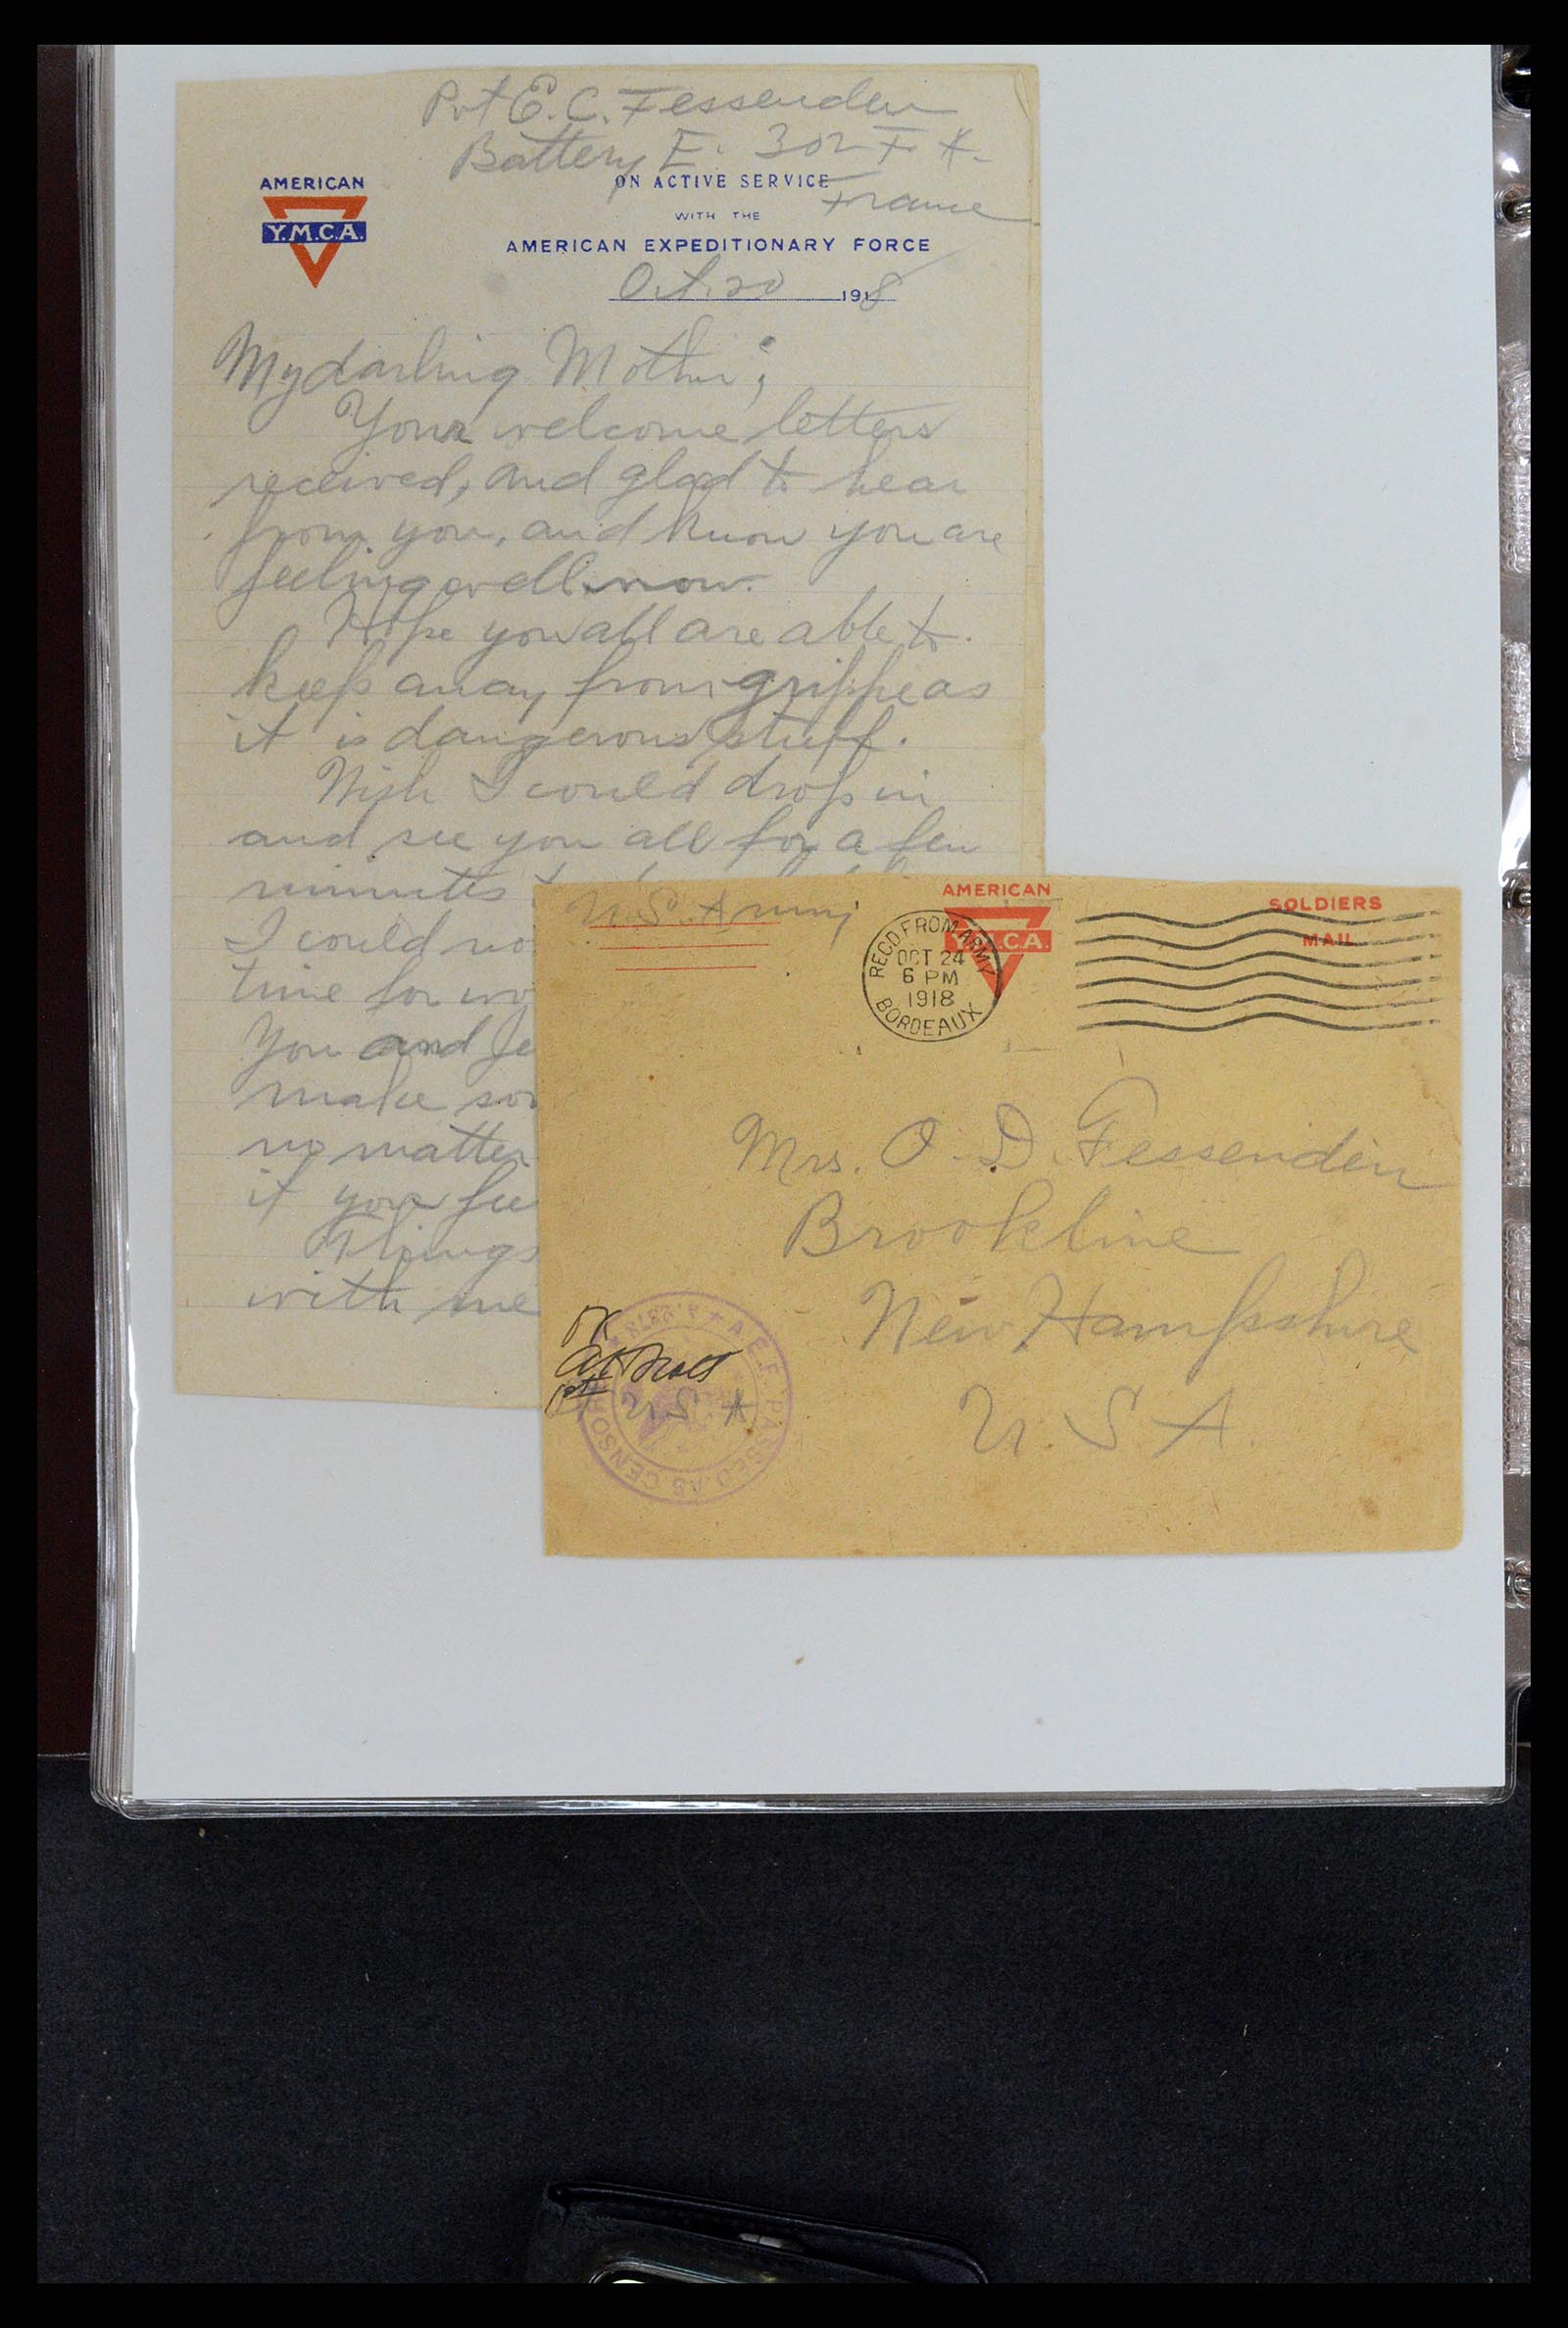 Pvt E. C. Fessenden
Battery E. 302 F A.
France
AMERICAN
Y.M.C.A.
ON ACTIVE SERVICE
WITH THE
AMERICAN EXPEDITIONARY FORCE
Oct. 20 1918
My darling Mother;
Your welcome letters
received, and glad to hear
from you, and know you are
feeling well now.
Hope you all are able to
keep away from grippe as
it is dangerous stuff.
Wish I could drop in
and see you all for a few
minutes
I could no
time for wo
You and Je
make so
no matter
if you fee
Things
with me
U.S. Army
AMERICAN
Y.M.C.A.
SOLDIERS
MAIL
REC'D FROM ARMY
OCT 24
6 PM
1918
BORDEAUX
Mrs. O. D. Fessenden
Brookline
New Hampshire
U. S. A.
OK
U S A
A.E.F. PASSED AS CENSORED